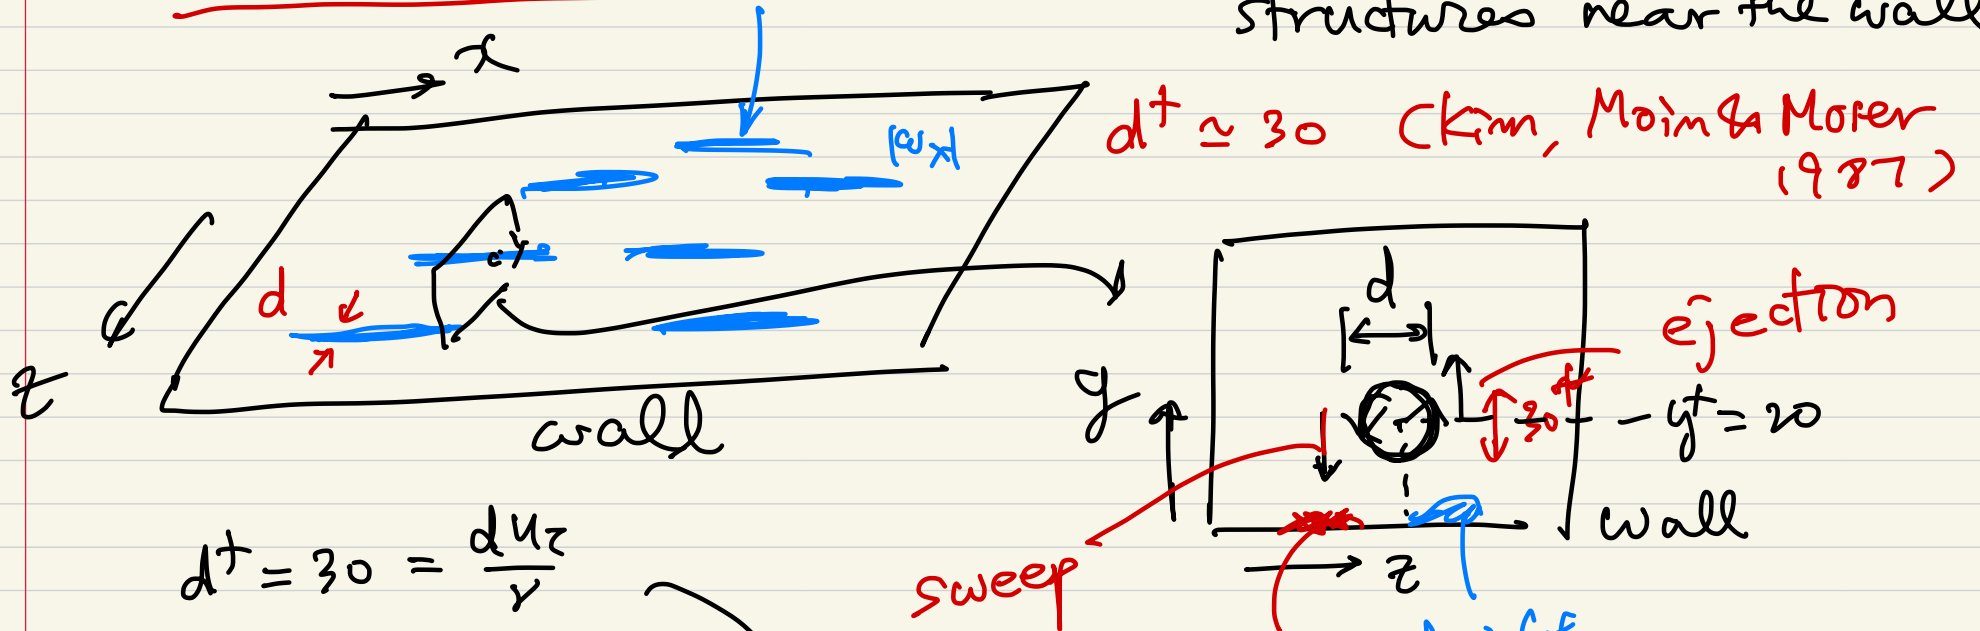 structures near the wall
x
d⁺ ≃ 30 (Kim, Moin & Moser
1987)
|ωx|
d
z
wall
d
ejection
30⁺
y⁺ = 20
y
wall
z
sweep
d⁺ = 30 = duτ/ν